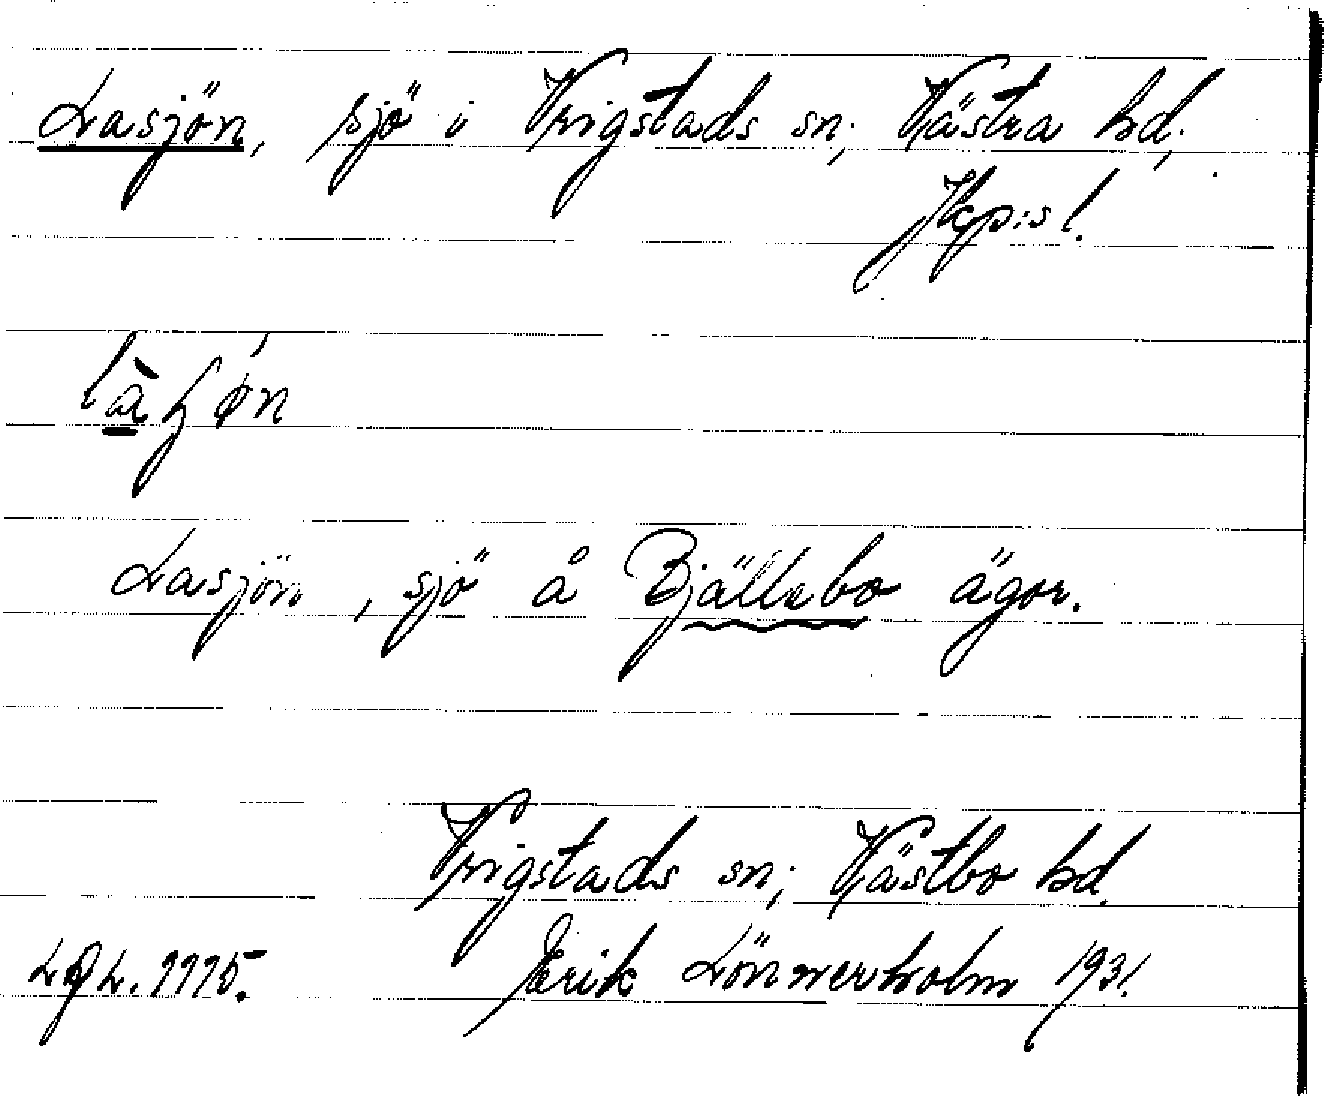 Lasjön, sjö i Vrigstads sn; Västra hd;
Jkp:s l.
Lasjön, sjö å Bjällebo ägor.
Vrigstads sn; Västbo hd.
Erik Lönnerholm 1931.